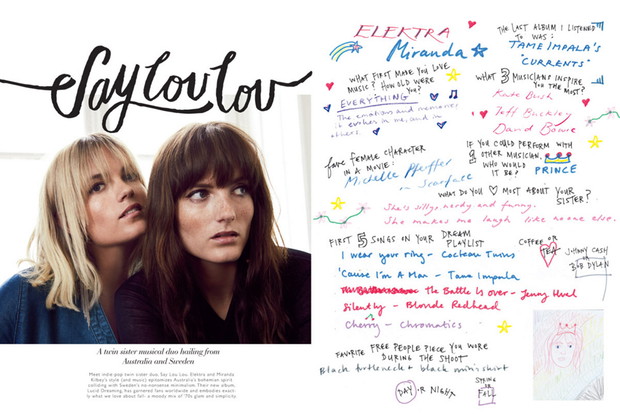 Say Lou Lou
A twin sister musical duo hailing from
Australia and Sweden
Meet indie-pop twin sister duo, Say Lou Lou. Elektra and Miranda
Kilbey's style (and music) epitomizes Australia's bohemian spirit,
colliding with Sweden's no-nonsense minimalism. Their new album,
Lucid Dreaming, has garnered fans worldwide and embodies exactly
what we love about fall: a moody mix of '70s glam and simplicity.
ELEKTRA
Miranda
WHAT FIRST MADE YOU LOVE
MUSIC? HOW OLD WERE
YOU?
EVERYTHING
The emotions and memories
it evokes in me, and in
others.
fave FEMALE CHARACTER
IN A MOVIE:
Michelle Pfeiffer
in Scarface
THE LAST ALBUM I LISTENED
TO WAS:
TAME IMPALA'S
"CURRENTS"
WHAT 3 MUSICIANS INSPIRE
YOU THE MOST?
Kate Bush
Jeff Buckley
David Bowie
IF YOU COULD PERFORM WITH
1 OTHER MUSICIAN,
WHO WOULD
IT BE?
PRINCE
WHAT DO YOU MOST ABOUT YOUR
SISTER?
She's silly, nerdy and funny.
She makes me laugh like no one else.
FIRST 5 SONGS ON YOUR DREAM
PLAYLIST
I wear your ring - Cocteau Twins
'Cause I'm A Man - Tame Impala
The Battle Is over - Jenny Hval
Silently - Blonde Redhead
Cherry - Chromatics
COFFEE OR
TEA
JOHNNY CASH
OR
BOB DYLAN
FAVORITE FREE PEOPLE PIECE YOU WORE
DURING THE SHOOT
Black turtleneck + black mini skirt
DAY OR NIGHT
SPRING
OR
FALL